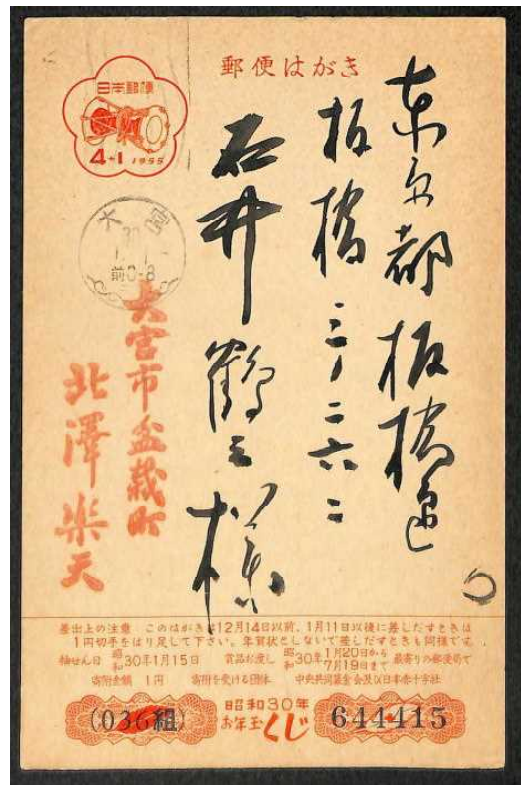 郵便はがき
日本郵便
4+1 1955
東京都板橋區
板橋三ノ二六二
石井鶴三様
大宮
30
1.1
前0-8
大宮市盆栽町
北澤楽天
差出上の注意 このはがきは12月14日以前、1月11日以後に差しだすときは
1円切手をはり足して下さい。年賀状としないで差しだすときも同様です
抽せん日 昭和30年1月15日 賞品お渡し 昭和30年1月20日から7月19日まで 最寄りの郵便局で
寄附金額 1円 寄附を受ける団体 中央共同募金会及び日本赤十字社
(036組)
昭和30年
お年玉くじ
644415